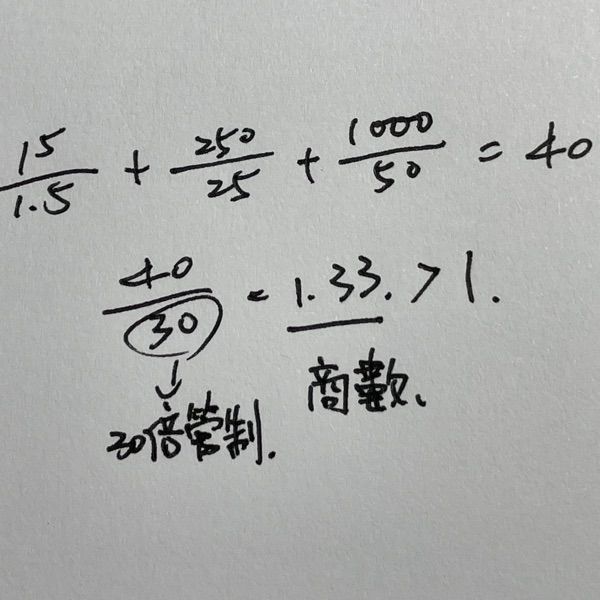 15/1.5 + 250/25 + 1000/50 = 40
40/30 = 1.33. > 1.
商數、
30倍管制.